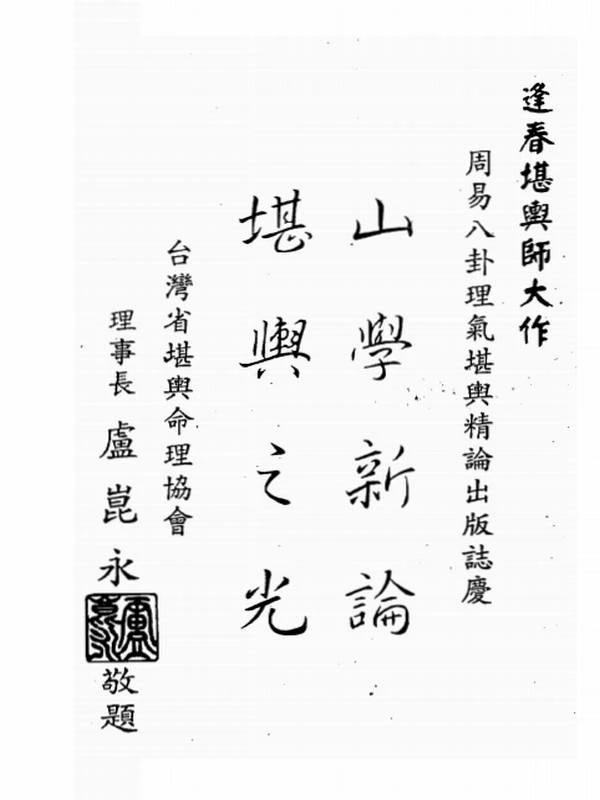 逢春堪輿師大作
周易八卦理氣堪輿精論出版誌慶
山學新論
堪輿之光
台灣省堪輿命理協會
理事長 盧崑永 敬題